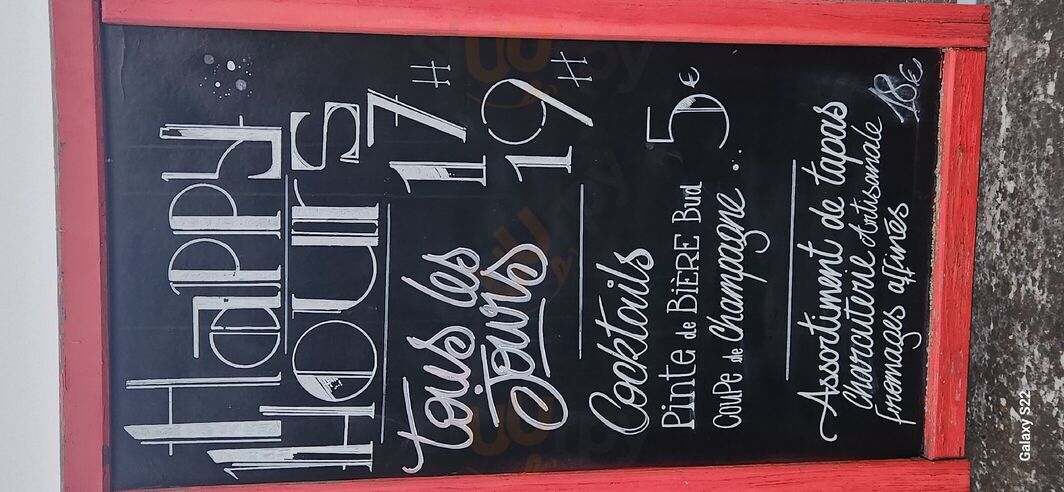 Happy
Hours
tous les 17H
Jours 19H
Cocktails
Pinte de BiERE Bud 5€
COUPE de Champagne
Assortiment de tapas
Charcuterie Artisanale 18€
fromages affinés
Galaxy S22